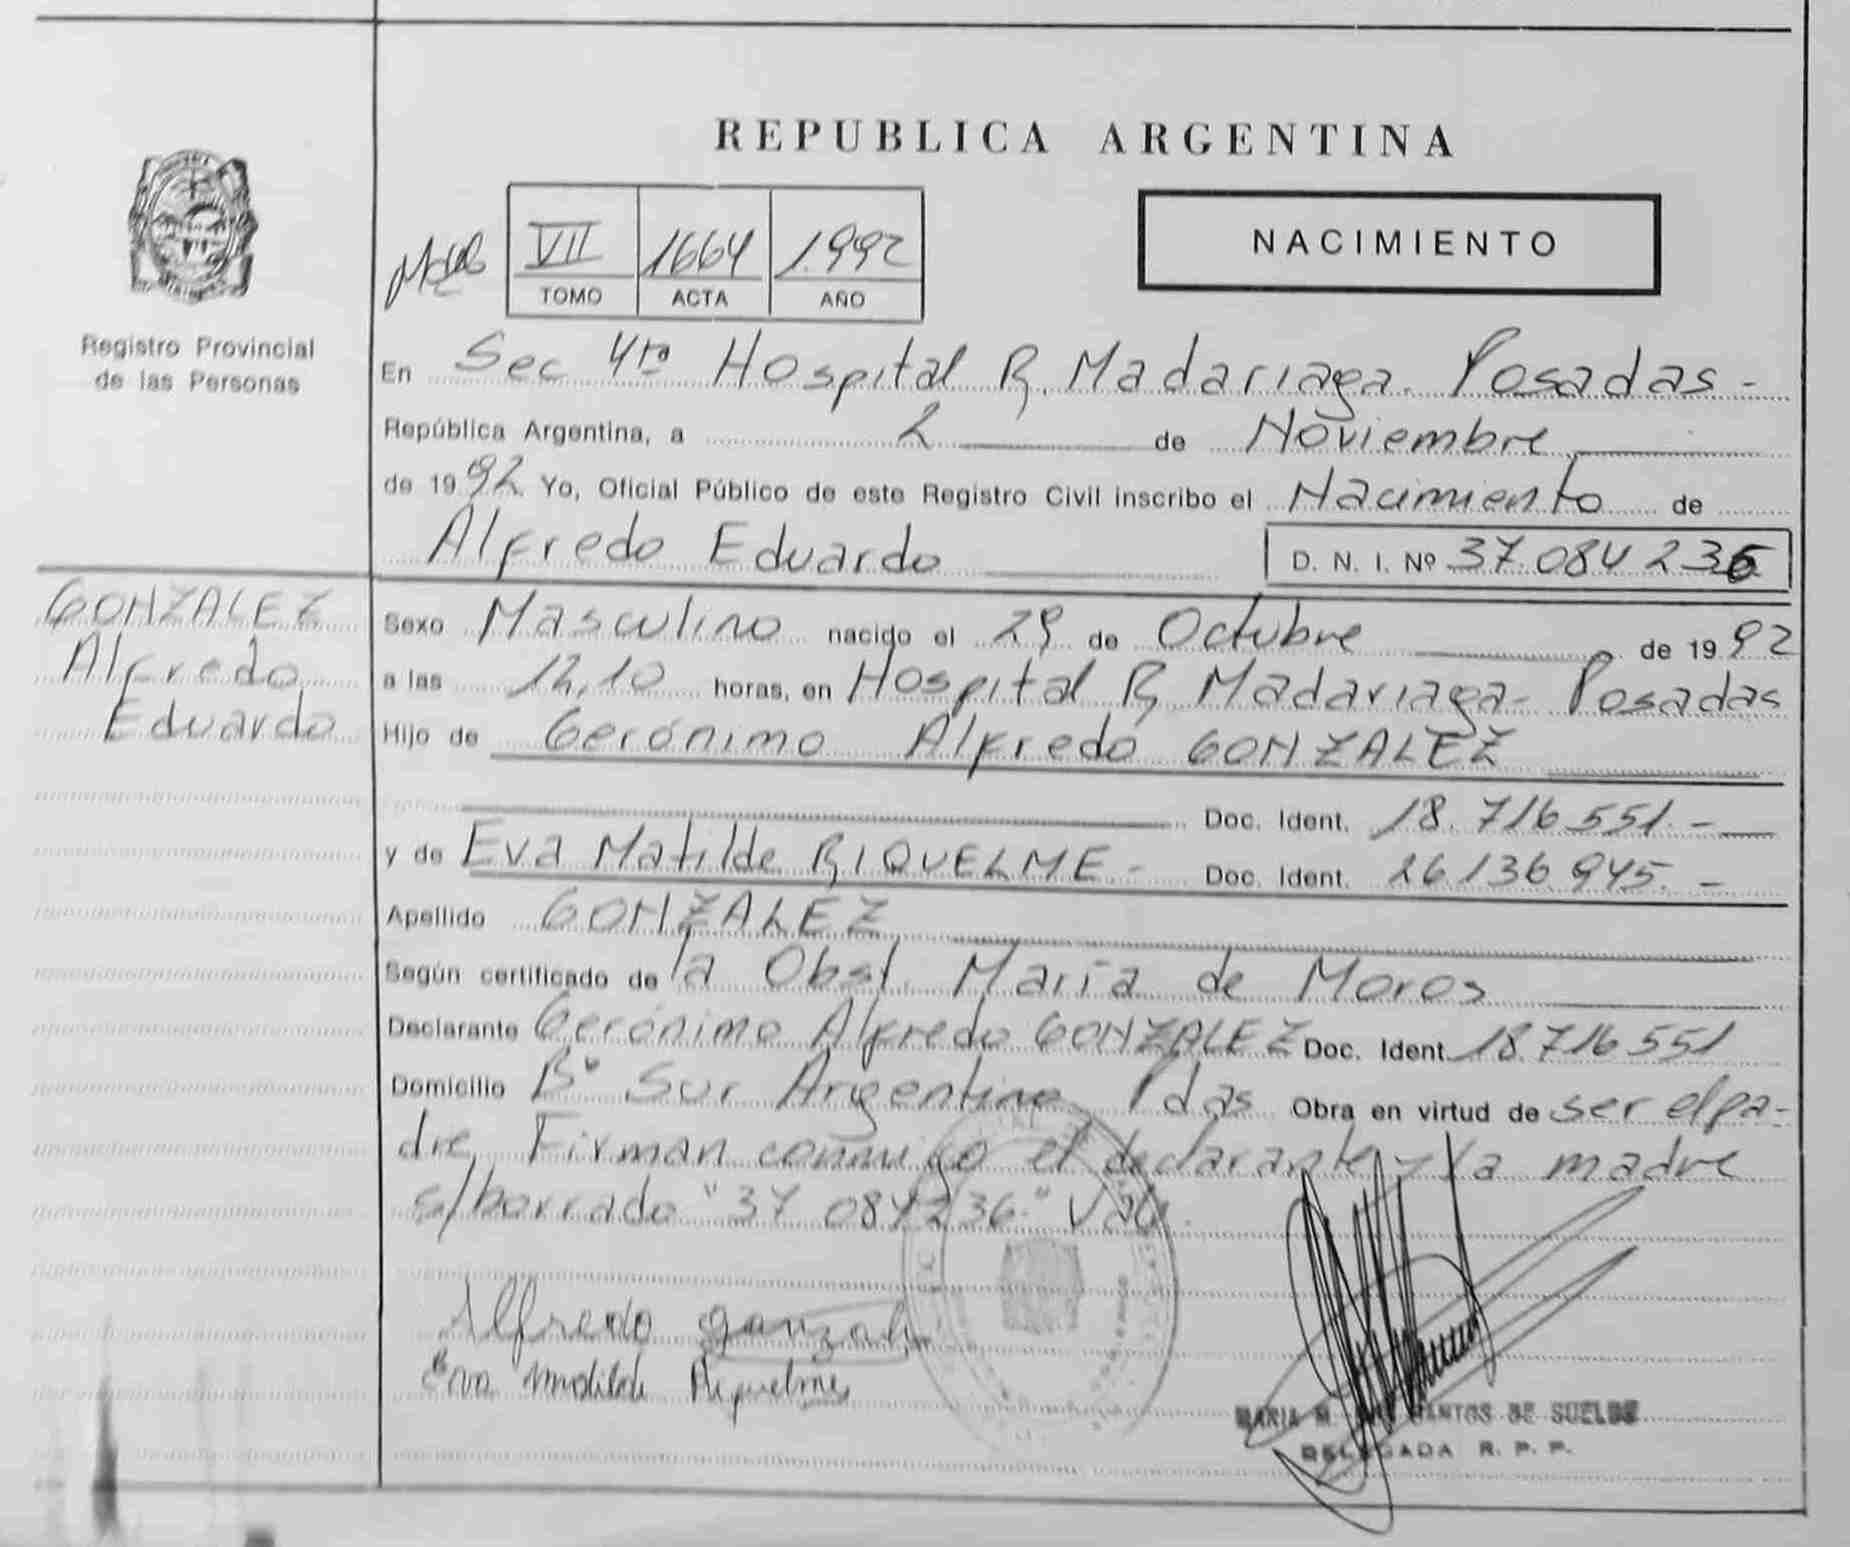 REPUBLICA ARGENTINA
NACIMIENTO
VII 1664 1.992
TOMO ACTA AÑO
Registro Provincial
de las Personas
En Sec 4ta Hospital R. Madariaga. Posadas -
República Argentina, a 2 de Noviembre
de 1992 Yo, Oficial Público de este Registro Civil inscribo el Nacimiento de
Alfredo Eduardo D. N. I. Nº 37.084 236
GONZALEZ
Alfredo
Eduardo
Sexo Masculino nacido el 29 de Octubre de 1992
a las 12,10 horas, en Hospital R. Madariaga - Posadas
Hijo de Gerónimo Alfredo GONZALEZ
Doc. Ident. 18.716551.-
y de Eva Matilde RIQUELME - Doc. Ident. 26136945.-
Apellido GONZALEZ
Según certificado de la Obst. María de Moros
Declarante Gerónimo Alfredo GONZALEZ Doc. Ident. 18.716551
Domicilio Bº Sur Argentino Pdas Obra en virtud de ser el pa-
dre, Firman conmigo el declarante y la madre
s/borrado "37 084236" Vale.
Alfredo
Eva Matilde Riquelme
MARIA M. SANTOS DE SUELDE
DELEGADA R. P. P.